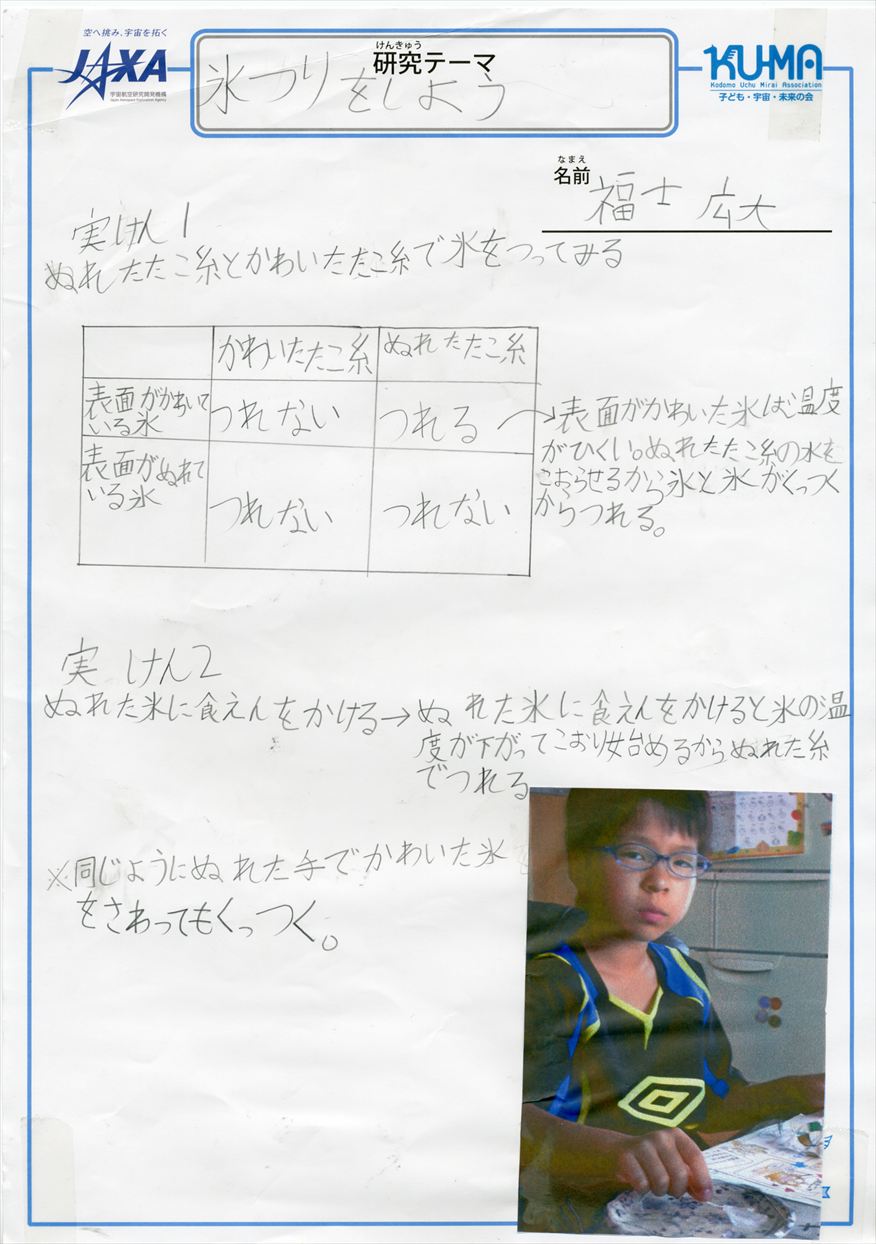 空へ挑み、宇宙を拓く
JAXA
宇宙航空研究開発機構
Japan Aerospace Exploration Agency
けんきゅう
研究テーマ
氷つりをしよう
KU-MA
Kodomo Uchu Mirai Association
子ども・宇宙・未来の会
なまえ
名前 福士 広大
実けん1
ぬれたたこ糸とかわいたたこ糸で氷をつってみる
かわいたたこ糸 ぬれたたこ糸
表面がかわいて
いる氷
つれない つれる
→表面がかわいた氷は温度
がひくい。ぬれたたこ糸の水を
こおらせるから氷と氷がくっつく
からつれる。
表面がぬれて
いる氷
つれない つれない
実けん2
ぬれた氷に食えんをかける→ぬれた氷に食えんをかけると氷の温
度が下がってこおり始めるからぬれた糸
でつれる
※同じようにぬれた手でかわいた氷
をさわってもくっつく。